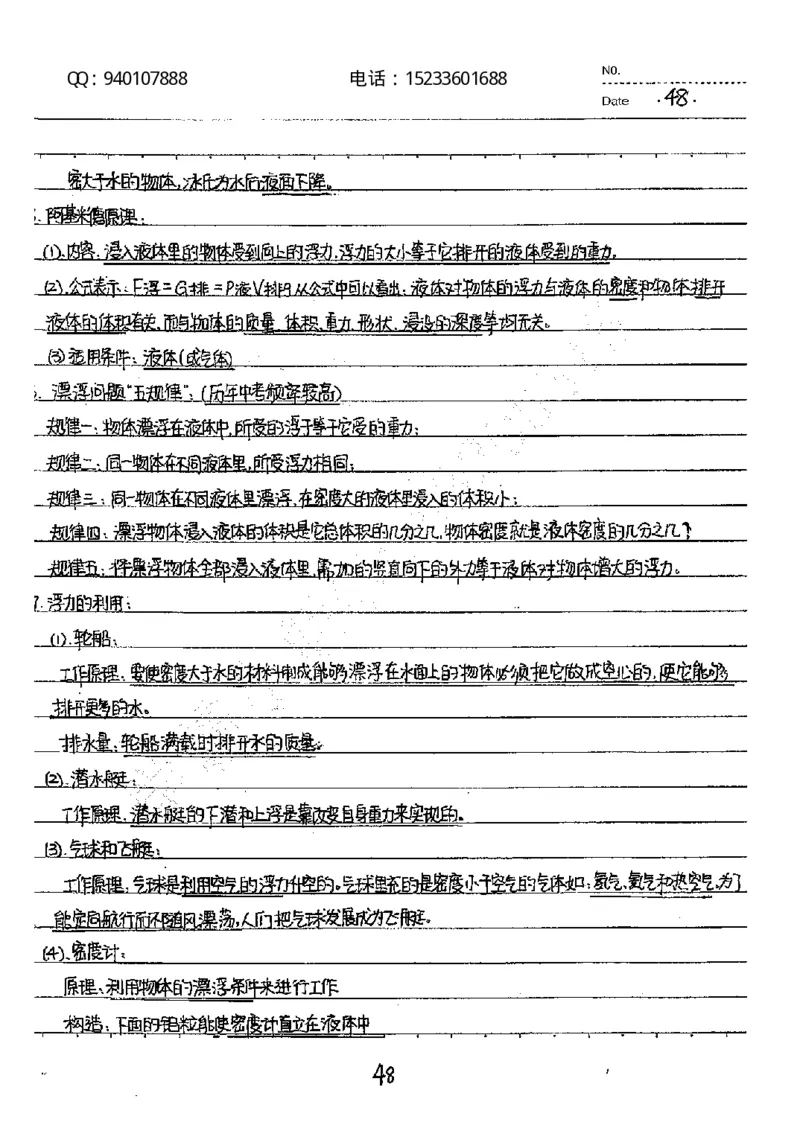 QQ：940107888 电话：15233601688 NO.
Date ·48·
密大于水的物体，冰化为水后液面下降。
阿基米德原理：
(1).内容：浸入液体里的物体受到向上的浮力，浮力的大小等于它排开的液体受到的重力。
(2).公式表示：F浮=G排=ρ液V排g 从公式中可以看出：液体对物体的浮力与液体的密度和物体排开
液体的体积有关，而与物体的质量、体积、重力、形状、浸没的深度等均无关。
(3)适用条件：液体(或气体)
漂浮问题“五规律”：(历年中考频率较高)
规律一：物体漂浮在液体中，所受的浮于等于它受的重力；
规律二：同一物体在不同液体里，所受浮力相同；
规律三：同一物体在不同液体里漂浮，在密度大的液体里浸入的体积小；
规律四：漂浮物体浸入液体的体积是它总体积的几分之几，物体密度就是液体密度的几分之几；
规律五：将漂浮物体全部浸入液体里，需加的竖直向下的外力等于液体对物体增大的浮力。
7.浮力的利用：
(1).轮船：
工作原理：要使密度大于水的材料制成能够漂浮在水面上的物体必须把它做成空心的，使它能够
排开更多的水。
排水量：轮船满载时排开水的质量。
(2).潜水艇：
工作原理：潜水艇的下潜和上浮是靠改变自身重力来实现的。
(3).气球和飞艇：
工作原理：气球是利用空气的浮力升空的。气球里充的是密度小于空气的气体如：氢气、氦气和热空气。为了
能定向航行而不随风漂荡，人们把气球发展成为飞艇。
(4).密度计：
原理：利用物体的漂浮条件来进行工作
构造：下面的铅粒能使密度计直立在液体中
48